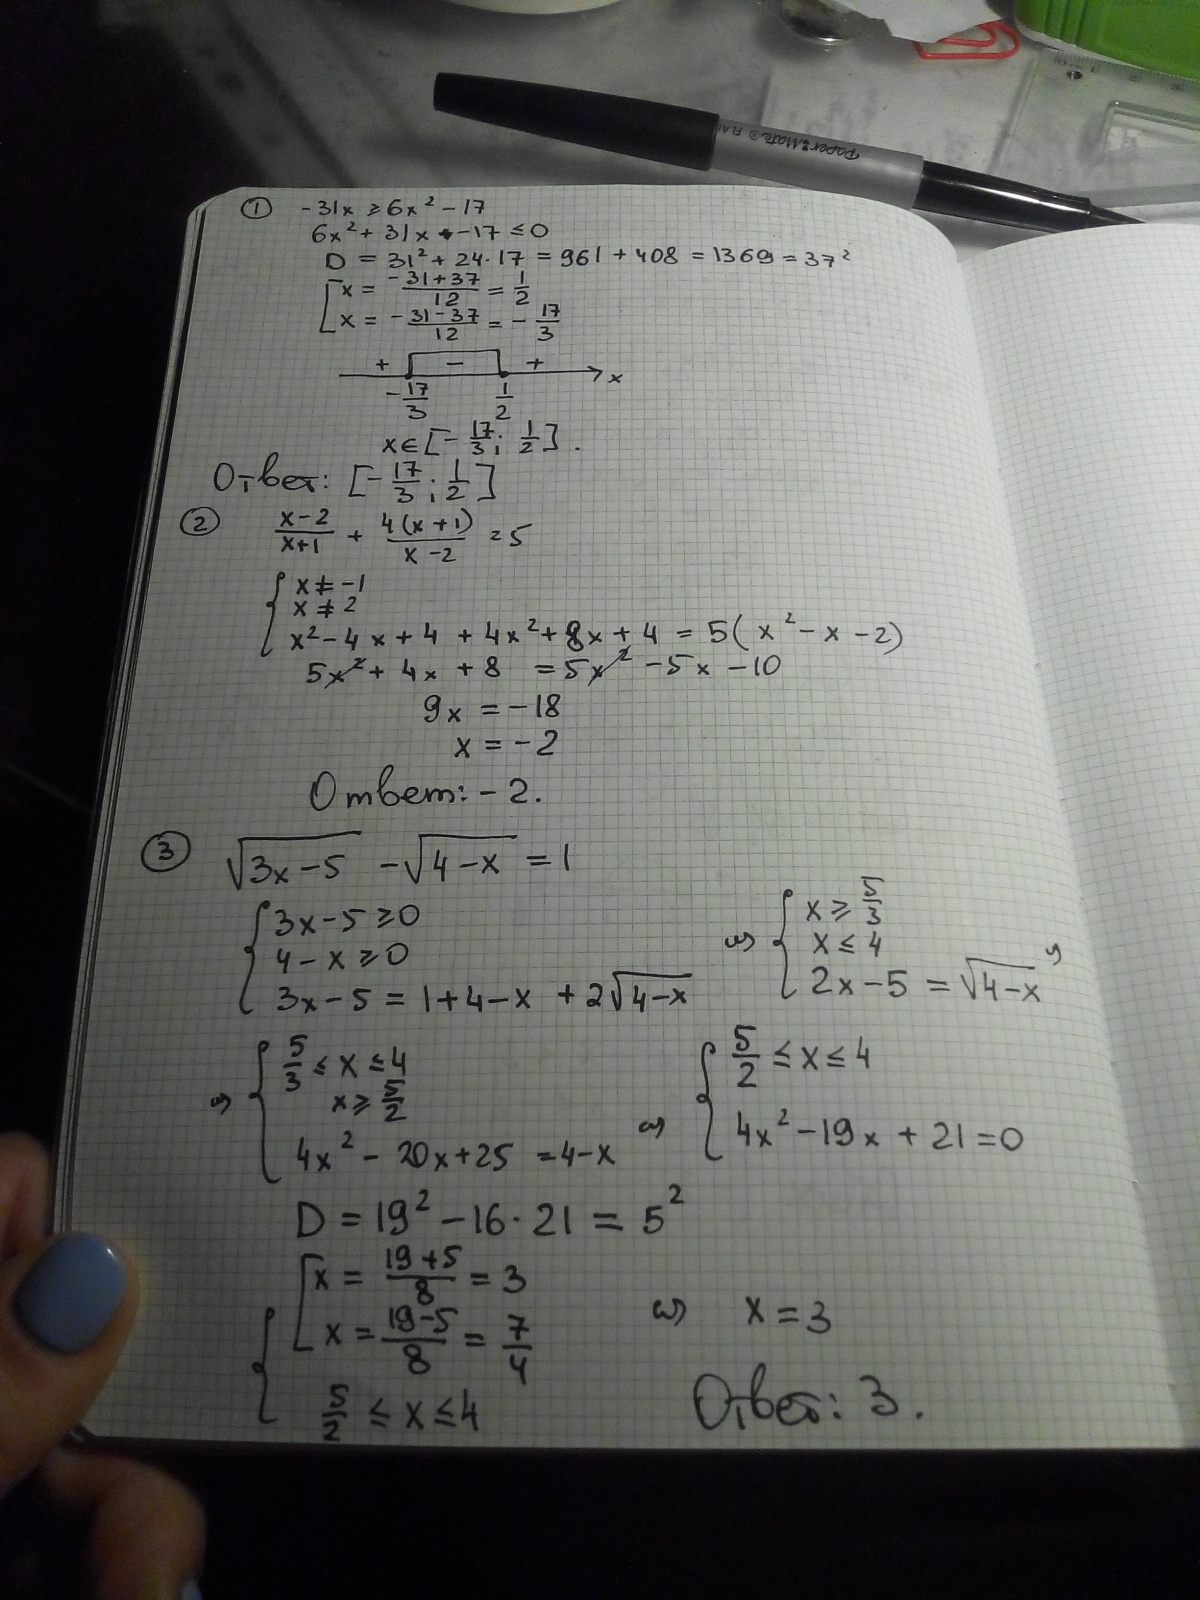 Paper Mate FLAI
① -31x ≥ 6x² - 17
6x² + 31x - 17 ≤ 0
D = 31² + 24·17 = 961 + 408 = 1369 = 37²
[ x = (-31+37)/12 = 1/2
x = (-31-37)/12 = -17/3
+ - + x
-17/3 1/2
x ∈ [-17/3; 1/2].
Ответ: [-17/3; 1/2]
② (x-2)/(x+1) + 4(x+1)/(x-2) = 5
{ x ≠ -1
x ≠ 2
x² - 4x + 4 + 4x² + 8x + 4 = 5(x² - x - 2)
5x² + 4x + 8 = 5x² - 5x - 10
9x = -18
x = -2
Ответ: -2.
③ √(3x-5) - √(4-x) = 1
{ 3x-5 ≥ 0
4 - x ≥ 0
3x - 5 = 1 + 4 - x + 2√(4-x)
⇔ { x ≥ 5/3
x ≤ 4
2x - 5 = √(4-x) ⇔
⇔ { 5/3 ≤ x ≤ 4
x ≥ 5/2
4x² - 20x + 25 = 4 - x
⇔ { 5/2 ≤ x ≤ 4
4x² - 19x + 21 = 0
D = 19² - 16·21 = 5²
{ [ x = (19+5)/8 = 3
x = (19-5)/8 = 7/4
5/2 ≤ x ≤ 4
⇔ x = 3
Ответ: 3.